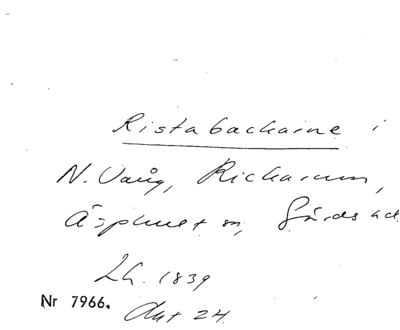 Ristabackarne i
N. Vång, Rickarum,
Äsphult sn, Gärds hd.
Lh. 1839
Nr 7966. Akt 24